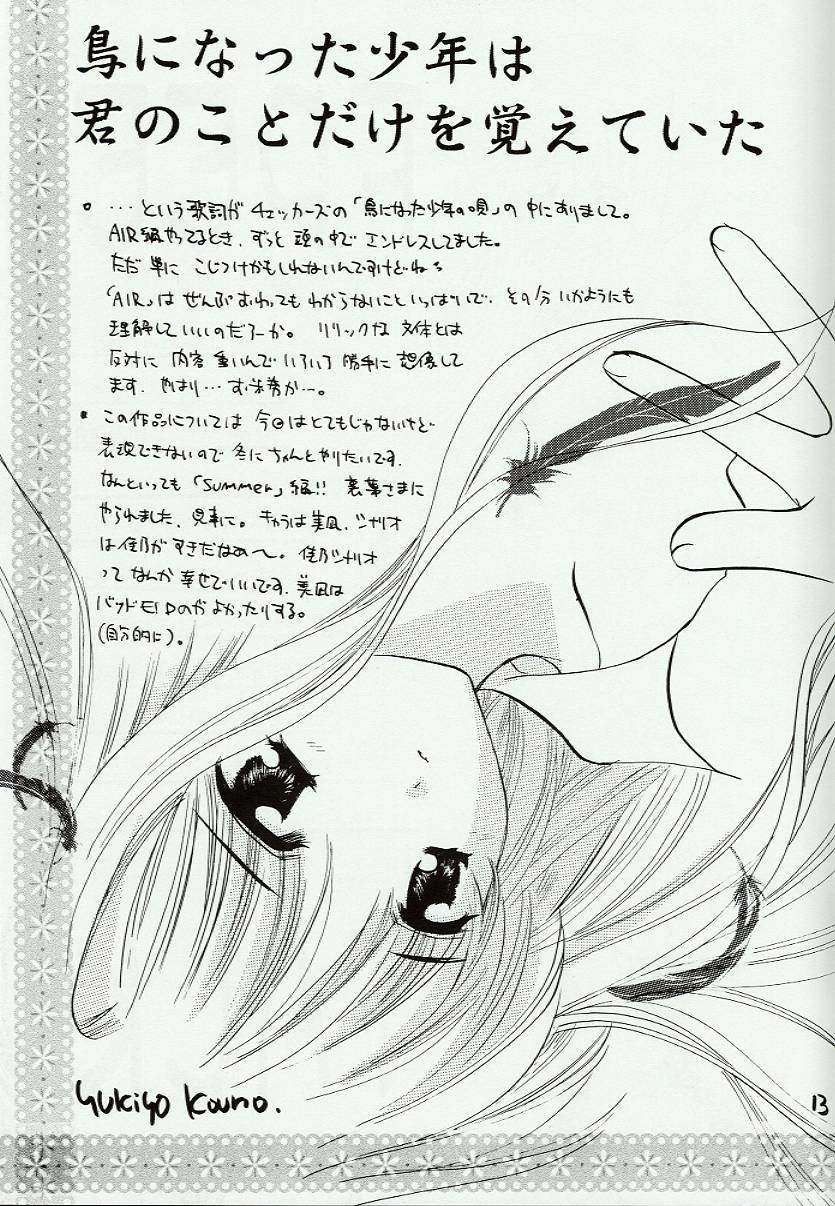 鳥になった少年は
君のことだけを覚えていた
・・・という歌詞が チェッカーズの「鳥になった少年の唄」の中にありまして。
AIR編やってるとき、ずっと頭の中でエンドレスしてました。
ただ単に こじつけかもしれないんですけどね
「AIR」は ぜんぶおわっても わからないこといっぱいで、その分いかようにも
理解していいのだろーか。 リリックな 文体とは
反対に 内容 重いんで いろいろ 勝手に 想像して
ます。やはり・・・
この作品については 今回はとてもじゃないけど
表現できないので 冬にちゃんとやりたいです。
なんといっても「Summer」編!! 裏葉さまに
やられました、見事に。キャラは美凪、シナリオ
は佳乃がすきだなあ〜。佳乃シナリオ
って なんか 幸せでいいです。美凪は
バッドENDのがよかったりする。
(自分的に)。
Yukiyo Kouno.
13